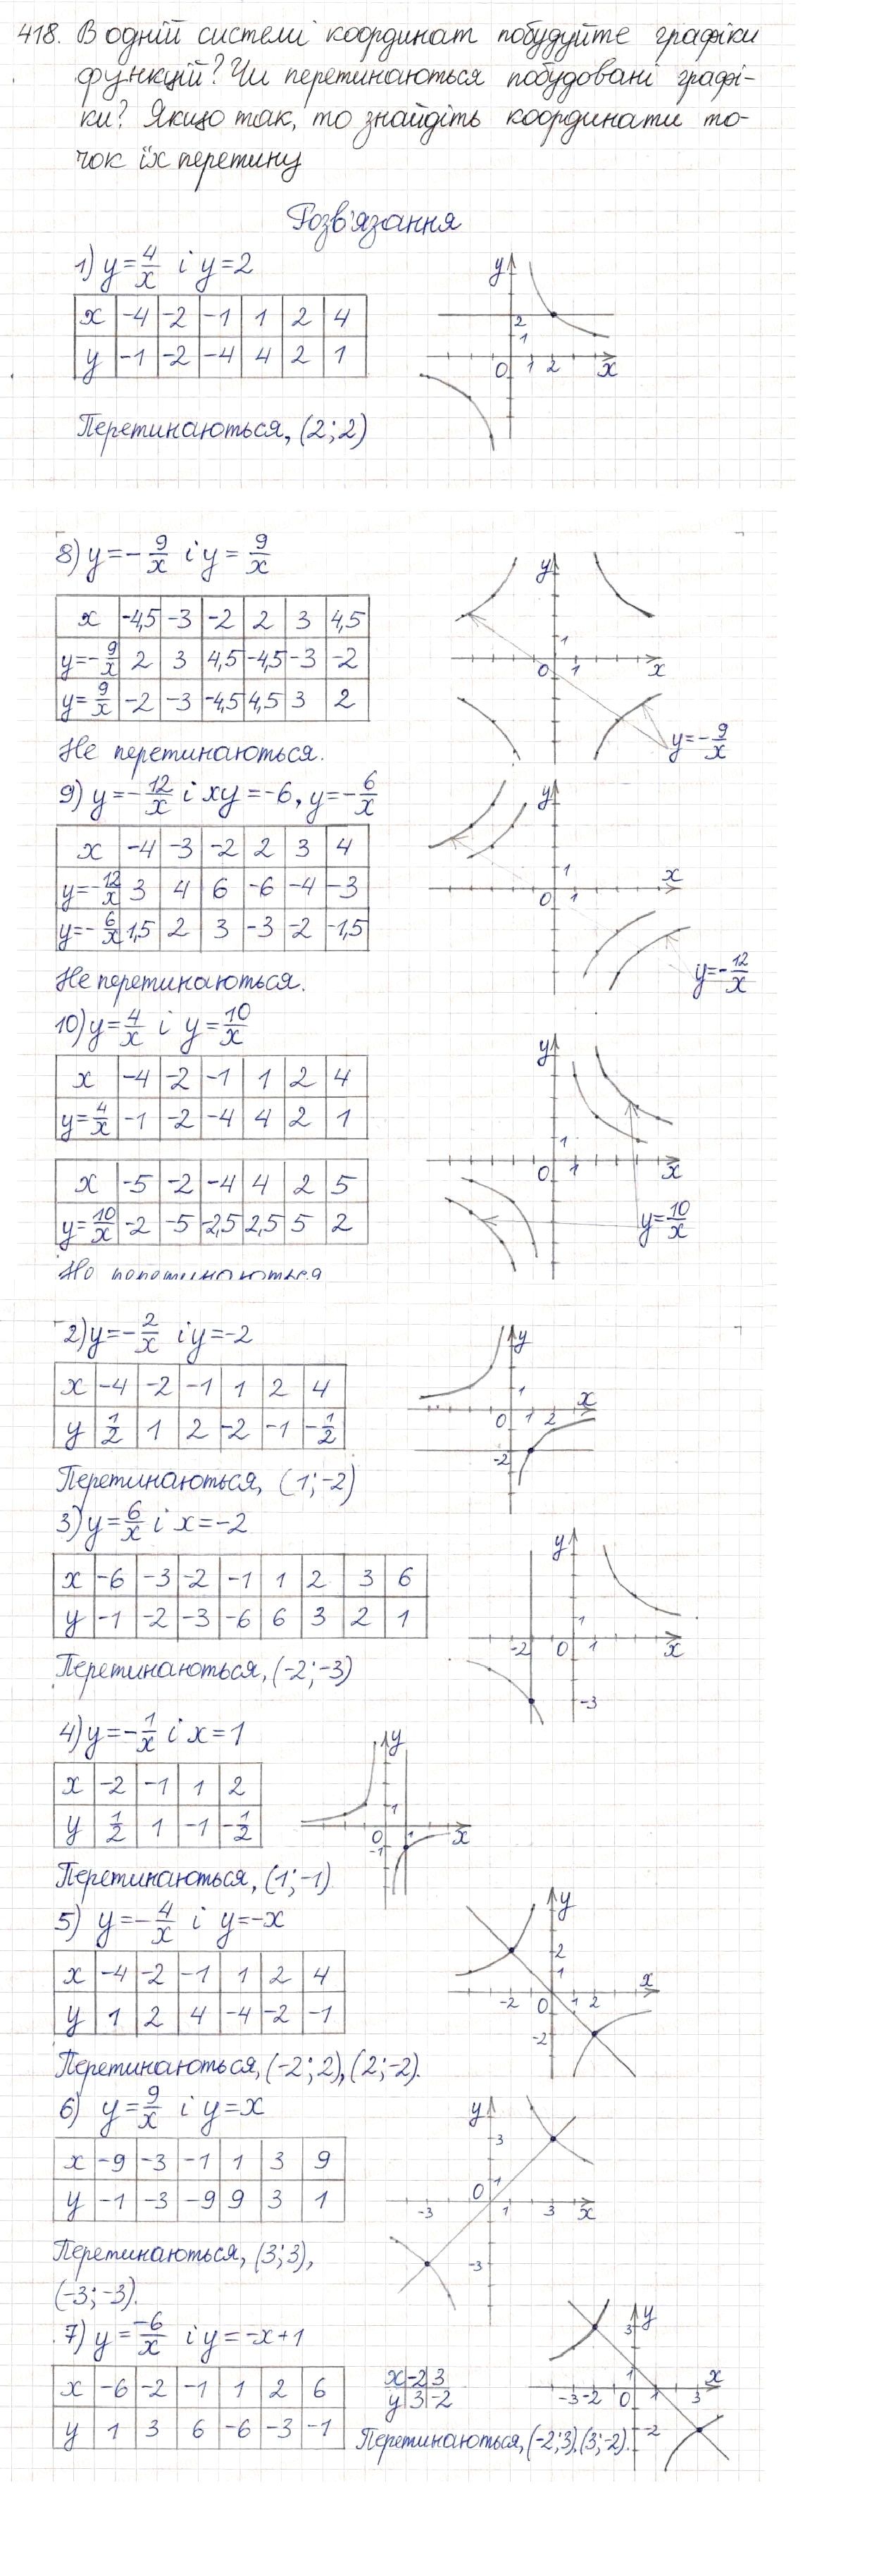 418. В одній системі координат побудуйте графіки
функцій? Чи перетинаються побудовані графі-
ки? Якщо так, то знайдіть координати то-
чок їх перетину
Розв'язання
1) y=4/x і y=2
x -4 -2 -1 1 2 4
y -1 -2 -4 4 2 1
Перетинаються, (2;2)
y
2
1
0 1 2 x
8) y=-9/x і y=9/x
x -4,5 -3 -2 2 3 4,5
y=-9/x 2 3 4,5 -4,5 -3 -2
y=9/x -2 -3 -4,5 4,5 3 2
Не перетинаються.
y
1
0 1 x
y=-9/x
9) y=-12/x і xy=-6, y=-6/x
x -4 -3 -2 2 3 4
y=-12/x 3 4 6 -6 -4 -3
y=-6/x 1,5 2 3 -3 -2 -1,5
Не перетинаються.
y
1 x
0 1
y=-12/x
10) y=4/x і y=10/x
x -4 -2 -1 1 2 4
y=4/x -1 -2 -4 4 2 1
x -5 -2 -4 4 2 5
y=10/x -2 -5 -2,5 2,5 5 2
y
1
0 1 x
y=10/x
2) y=-2/x і y=-2
x -4 -2 -1 1 2 4
y 1/2 1 2 -2 -1 -1/2
Перетинаються, (1;-2)
y
1 x
0 1 2
-2
3) y=6/x і x=-2
x -6 -3 -2 -1 1 2 3 6
y -1 -2 -3 -6 6 3 2 1
Перетинаються, (-2;-3)
y
1
-2 0 1 x
-3
4) y=-1/x і x=1
x -2 -1 1 2
y 1/2 1 -1 -1/2
Перетинаються, (1;-1)
y
1
0 1 x
-1
5) y=-4/x і y=-x
x -4 -2 -1 1 2 4
y 1 2 4 -4 -2 -1
Перетинаються, (-2;2), (2;-2).
y
2
1 x
-2 0 1 2
-2
6) y=9/x і y=x
x -9 -3 -1 1 3 9
y -1 -3 -9 9 3 1
Перетинаються, (3;3),
(-3;-3).
y
3
0 1
-3 1 3 x
-3
7) y=-6/x і y=-x+1
x -6 -2 -1 1 2 6
y 1 3 6 -6 -3 -1
x -2 3
y 3 -2
Перетинаються, (-2;3), (3;-2).
y
3
1 x
-3 -2 0 1 3
-2